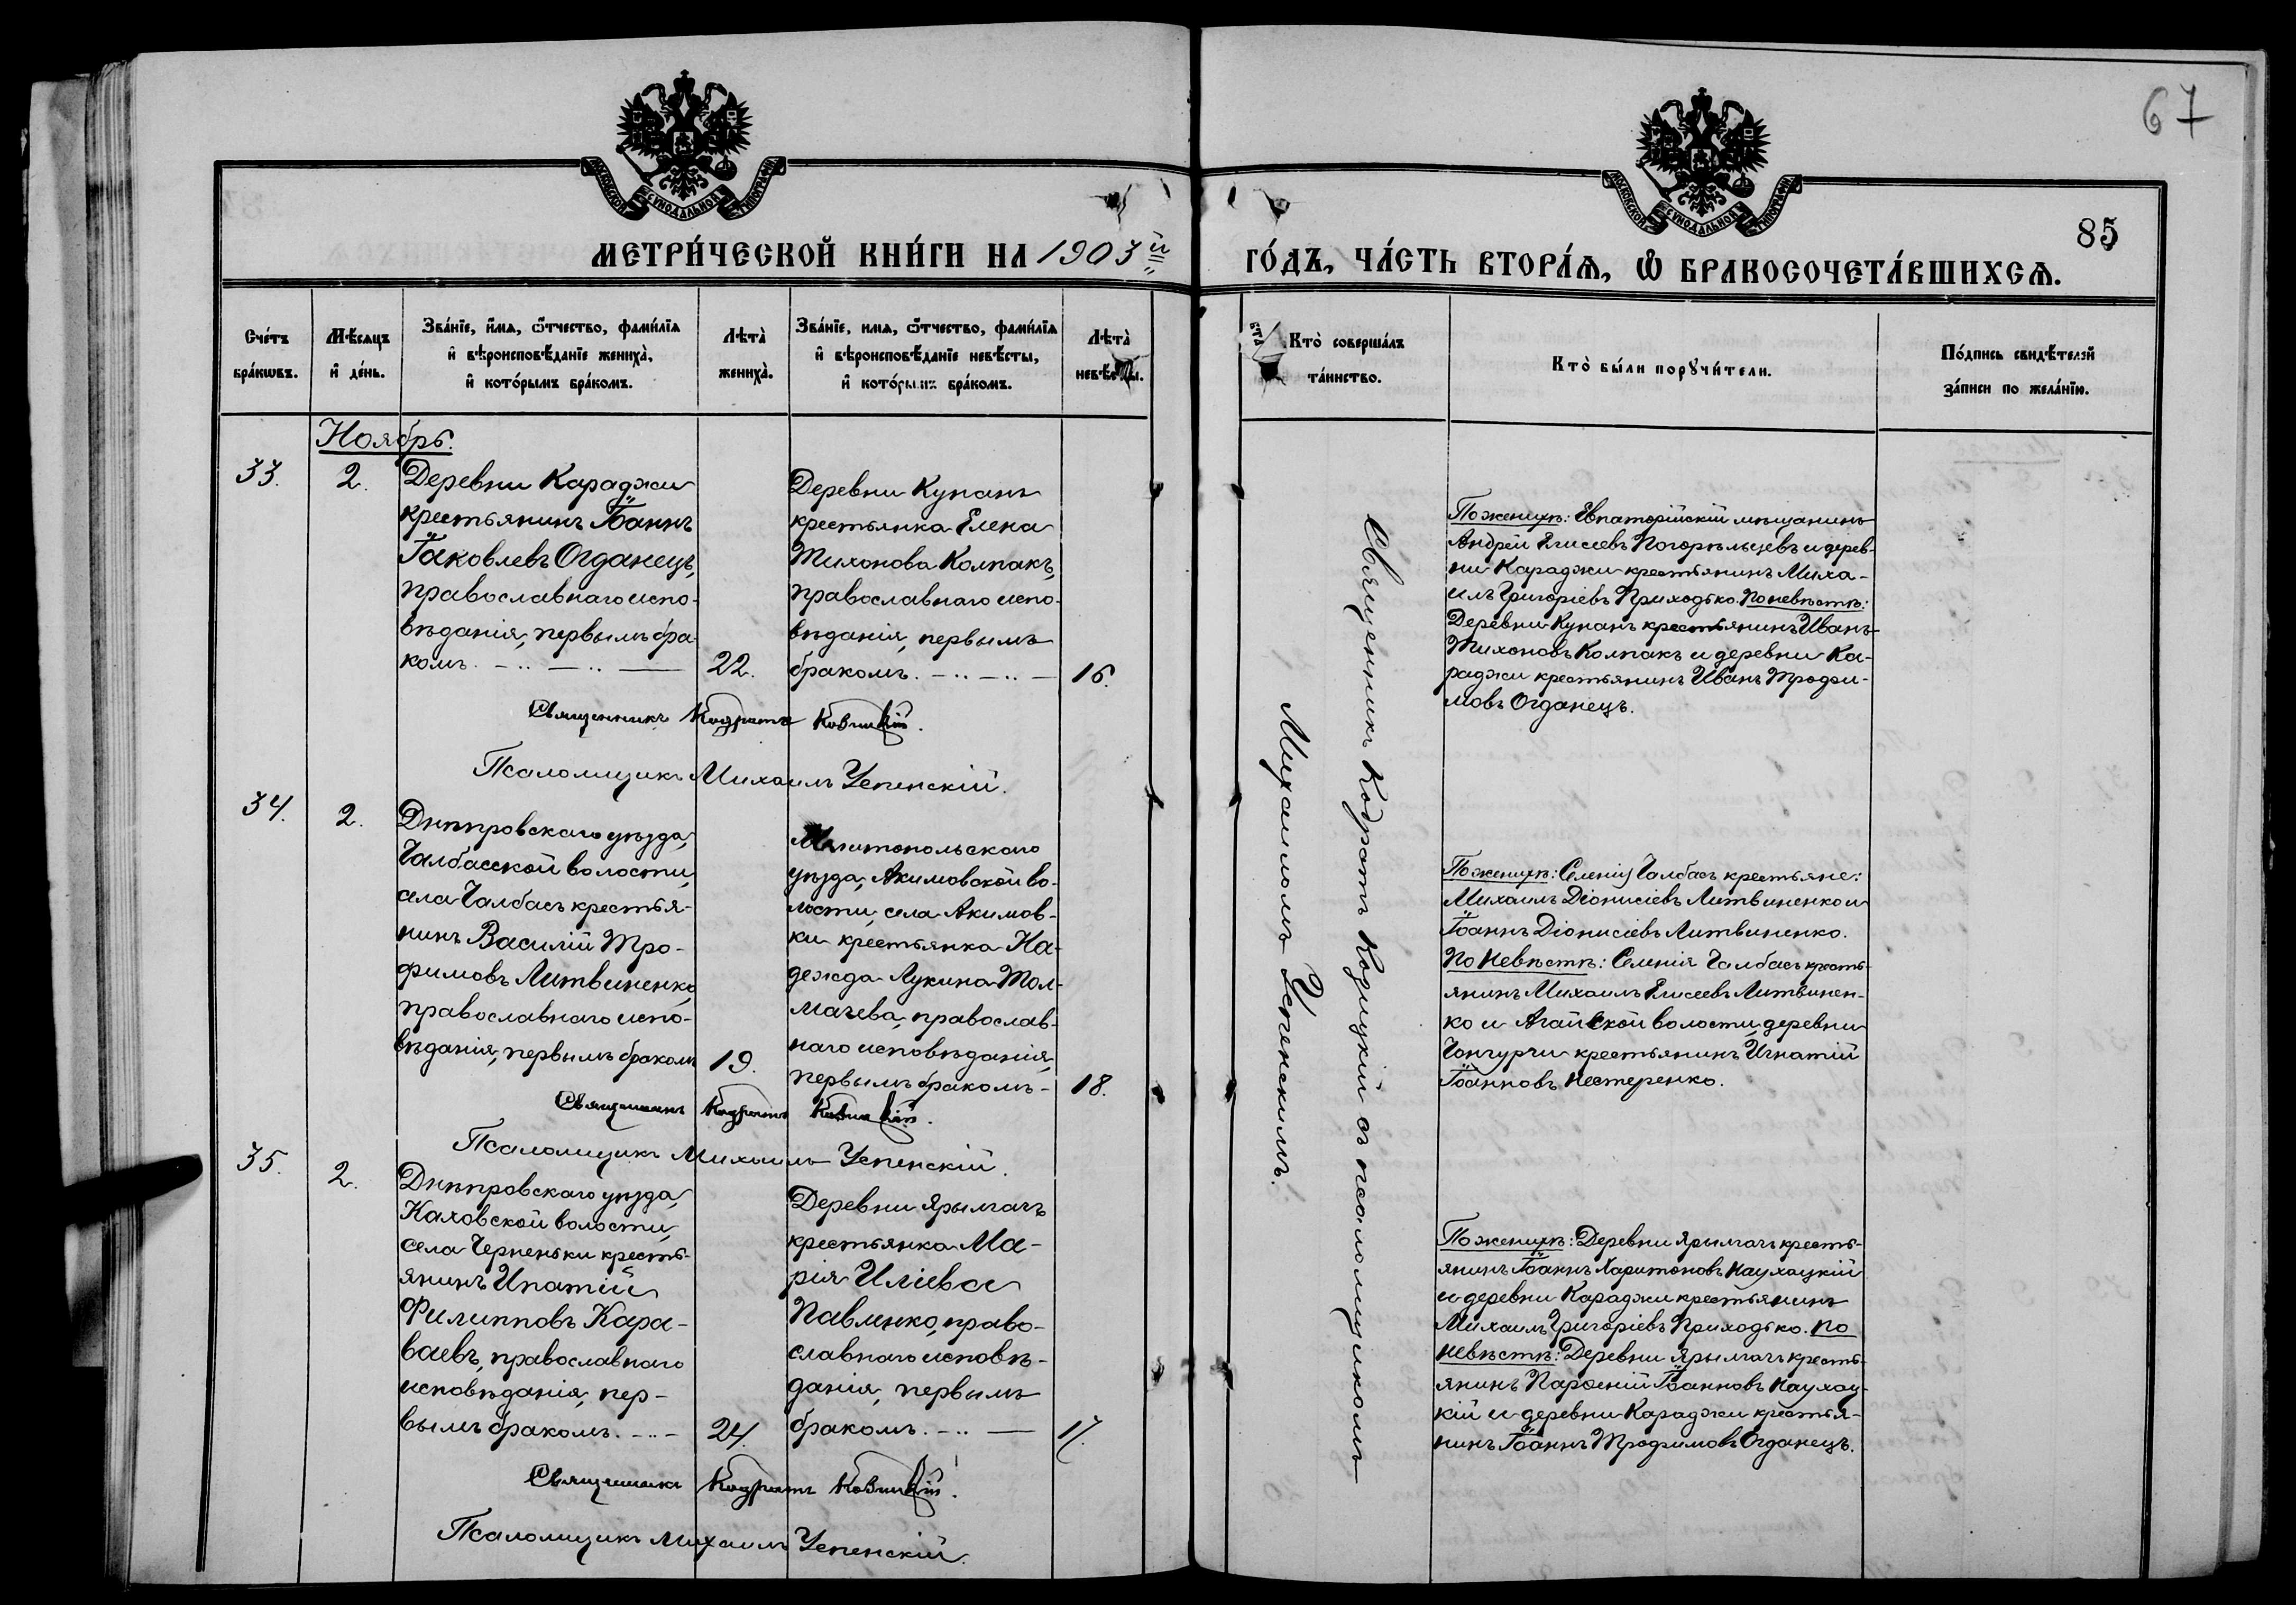 67
МОСКОВСКОЙ СѴНОДАЛЬНОЙ ТИПОГРАФІИ
МОСКОВСКОЙ СѴНОДАЛЬНОЙ ТИПОГРАФІИ
85
МЕТРИ́ЧЕСКОЙ КНИ́ГИ НА 1903й
ГО́ДЪ, ЧА́СТЬ ВТОРА́Ѧ, Ѽ БРАКОСОЧЕТА́ВШИХСѦ.
Сче́тъ бра́кѡвъ.
Мѣ́сѧцъ и де́нь.
Зва́нїе, и́мѧ, ѻ́тчество, фами́лїѧ и вѣроисповѣ́данїе жениха̀, и кото́рымъ бра́комъ.
Лѣта̀ жениха̀.
Зва́нїе, имѧ, ѻ́тчество, фами́лїѧ и вѣроисповѣ́данїе невѣ́сты, и кото́рымъ бра́комъ.
Лѣта̀ невѣ́сты.
Кто̀ соверша́лъ та́инство.
Кто̀ бы́ли порꙋчи́тели.
По́дпись свидѣ́телей за́писи по жела́нїю.
Ноябрь.
33.
2.
Деревни Караджи
крестьянинъ Іоаннъ
Іаковлевъ Огданецъ,
православнаго испо-
вѣданія, первымъ бра-
комъ.
22.
Деревни Купанъ
крестьянка Елена
Тихонова Колпакъ,
православнаго испо-
вѣданія, первымъ
бракомъ.
16.
По женихѣ: Евпаторійскій мѣщанинъ
Андрей Елисеевъ Погорѣльцевъ и дерев-
ни Караджи крестьянинъ Миха-
илъ Григоріевъ Приходько. По невѣстѣ:
Деревни Купанъ крестьянинъ Иванъ
Тихоновъ Колпакъ и деревни Ка-
раджи крестьянинъ Иванъ Трофи-
мовъ Огданецъ.
Священникъ Кодратъ Козицкій.
Псаломщикъ Михаилъ Успенскій.
34.
2.
Днѣпровскаго уѣзда,
Чалбасской волости,
села Чалбасъ крестья-
нинъ Василій Тро-
фимовъ Литвиненко,
православнаго испо-
вѣданія, первымъ бракомъ
19.
Мелитопольскаго
уѣзда, Акимовской во-
лости, села Акимов-
ки крестьянка На-
дежда Лукина Тол-
мачева, православ-
наго исповѣданія,
первымъ бракомъ-
18.
По женихѣ: Селенія Чалбасъ крестьяне:
Михаилъ Діонисіевъ Литвиненко и
Іоаннъ Діонисіевъ Литвиненко.
По невѣстѣ: Селенія Чалбасъ кресть-
янинъ Михаилъ Елисеевъ Литвинен-
ко и Агайской волости, деревни
Чонгурчи крестьянинъ Игнатій
Іоанновъ Нестеренко.
Священникъ Кодратъ Козицкій.
Псаломщикъ Михаилъ Успенскій.
35.
2.
Днѣпровскаго уѣзда,
Каховской волости,
села Черненьки кресть-
янинъ Ипатій
Филипповъ Кара-
ваевъ, православнаго
исповѣданія, пер-
вымъ бракомъ.
24.
Деревни Ярылгачъ
крестьянка Ма-
рія Иліева
Павленко, право-
славнаго исповѣ-
данія, первымъ
бракомъ.
17.
По женихѣ: Деревни Ярылгачъ кресть-
янинъ Іоаннъ Харитоновъ Каухацкій
и деревни Караджи крестьянинъ
Михаилъ Григоріевъ Приходько. По
невѣстѣ: Деревни Ярылгачъ кресть-
янинъ Парѳеній Іоанновъ Каухац-
кій и деревни Караджи крестья-
нинъ Іоаннъ Трофимовъ Огданецъ.
Священникъ Кодратъ Козицкій.
Псаломщикъ Михаилъ Успенскій.
Священникъ Кодратъ Козицкій съ псаломщикомъ
Михаиломъ Успенскимъ.